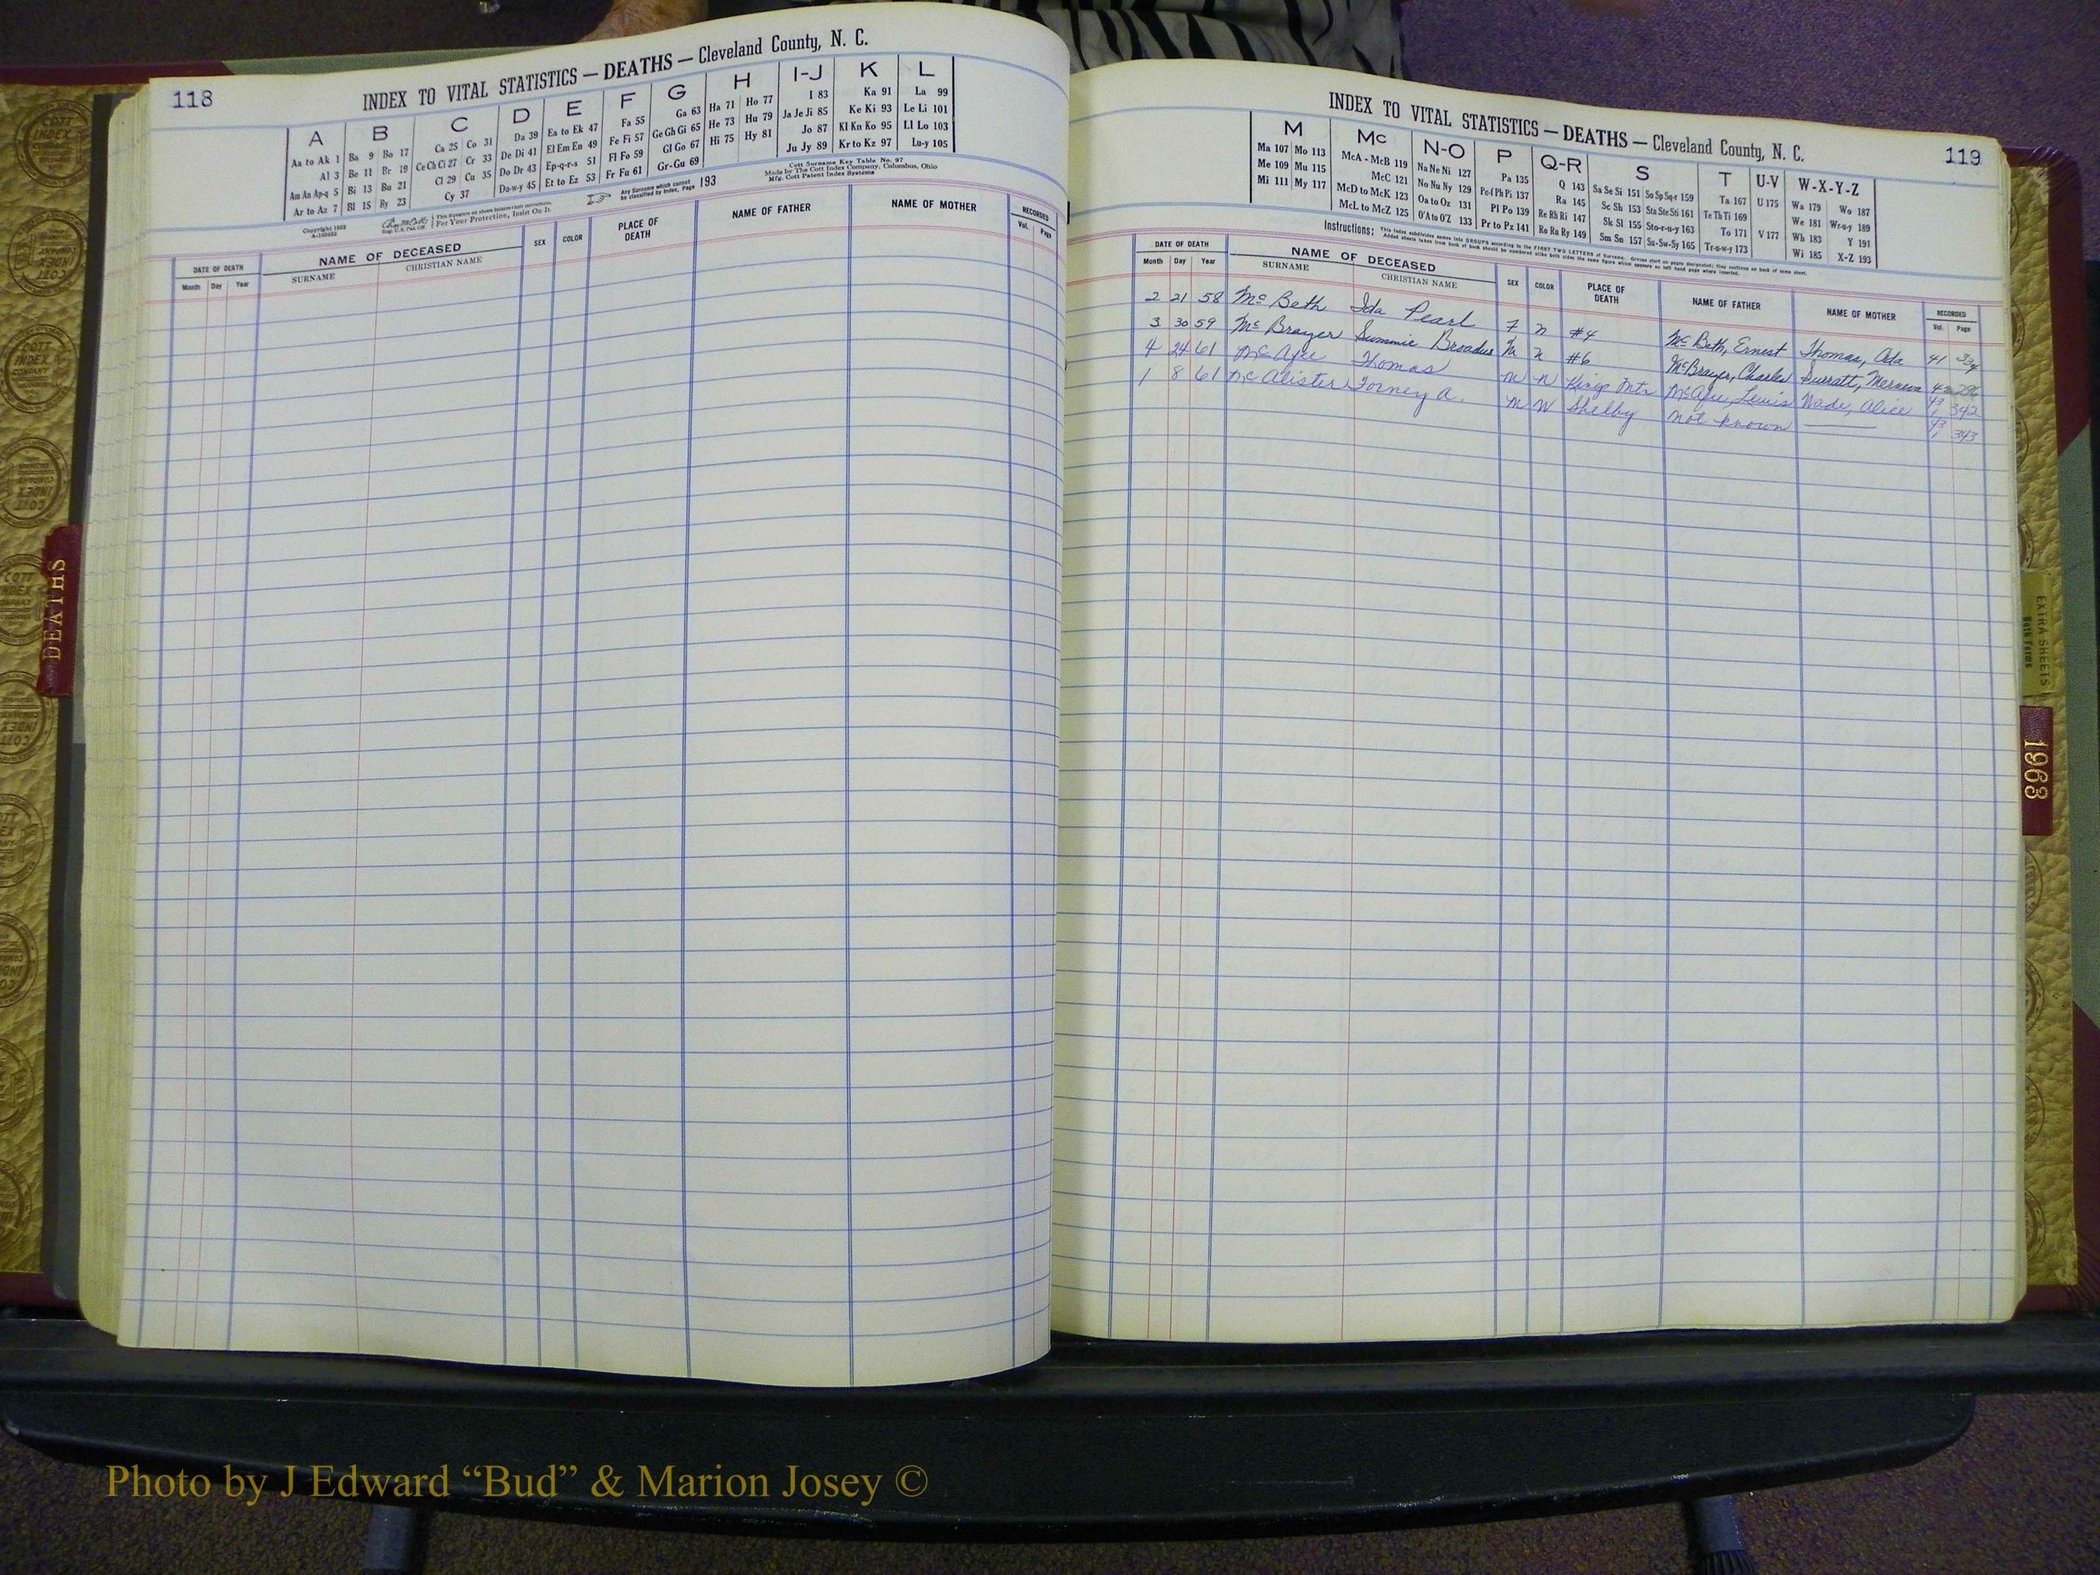 118
INDEX TO VITAL STATISTICS — DEATHS — Cleveland County, N. C.
A B C D E F G H I-J K L
Aa to Ak 1 Ba 9 Bo 17 Ca 25 Co 31 Da 39 Ea to Ek 47 Fa 55 Ga 63 Ha 71 Ho 77 I 83 Ka 91 La 99
Al 3 Be 11 Br 19 Ce Ch Ci 27 Cr 33 De Di 41 El Em En 49 Fe Fi 57 Ge Gh Gi 65 He 73 Hu 79 Ja Je Ji 85 Ke Ki 93 Le Li 101
Am An Ap-q 5 Bi 13 Bu 21 Cl 29 Cu 35 Do Dr 43 Ep-q-r-s 51 Fl Fo 59 Gl Go 67 Hi 75 Hy 81 Jo 87 Kl Kn Ko 95 Ll Lo 103
Ar to Az 7 Bl 15 By 23 Cy 37 Du-w-y 45 Et to Ez 53 Fr Fu 61 Gr-Gu 69 Ju Jy 89 Kr to Kz 97 Lu-y 105
Copyright 1902
For Your Protection, Insist On It.
Any Surname which cannot be classified by index, Page 193
Cott Surname Key Table No. 97
Made by The Cott Index Company, Columbus, Ohio
Mfg. Cott Patent Index Systems
DATE OF DEATH NAME OF DECEASED SEX COLOR PLACE OF DEATH NAME OF FATHER NAME OF MOTHER RECORDED
Month Day Year SURNAME CHRISTIAN NAME Vol. Page
119
INDEX TO VITAL STATISTICS — DEATHS — Cleveland County, N. C.
M Mc N-O P Q-R S T U-V W-X-Y-Z
Ma 107 Mo 113 McA - McB 119 Na Ne Ni 127 Pa 135 Q 143 Sa Se Si 151 So Sp Sq-r 159 Ta 167 U 175 Wa 179 Wo 187
Me 109 Mu 115 McC 121 No Nu Ny 129 Pe-f Ph Pi 137 Ra 145 Sc Sh 153 Sta Ste Sti 161 Te Th Ti 169 We 181 Wr-u-y 189
Mi 111 My 117 McD to McK 123 Oa to Oz 131 Pl Po 139 Re Rh Ri 147 Sk Sl 155 Sto-r-u-y 163 To 171 V 177 Wh 183 Y 191
McL to McZ 125 O'A to O'Z 133 Pr to Pz 141 Ro Ru Ry 149 Sm Sn 157 Su-Sw-Sy 165 Tr-u-w-y 173 Wi 185 X-Z 193
Instructions: This Index subdivides names into GROUPS according to the FIRST TWO LETTERS of Surname. Groups start on pages designated; they continue on back of same sheet.
DATE OF DEATH NAME OF DECEASED SEX COLOR PLACE OF DEATH NAME OF FATHER NAME OF MOTHER RECORDED
Month Day Year SURNAME CHRISTIAN NAME Vol. Page
2 21 58 McBeth Ida Pearl F N #4 McBeth, Ernest Thomas, Ada 41 334
3 30 59 McBrayer Summie Broadus M N #6 McBrayer, Charles Surratt, 42 296
4 24 61 McAfee Thomas M N Kings Mtn McAfee, Lewis Wade, Alice 43 1 342
1 8 61 McAlister Forney A. M W Shelby not known —— 43 1 343
DEATHS
EXTRA SHEETS
Both Forms
1963
COTT INDEX COMPANY
Photo by J Edward “Bud” & Marion Josey ©